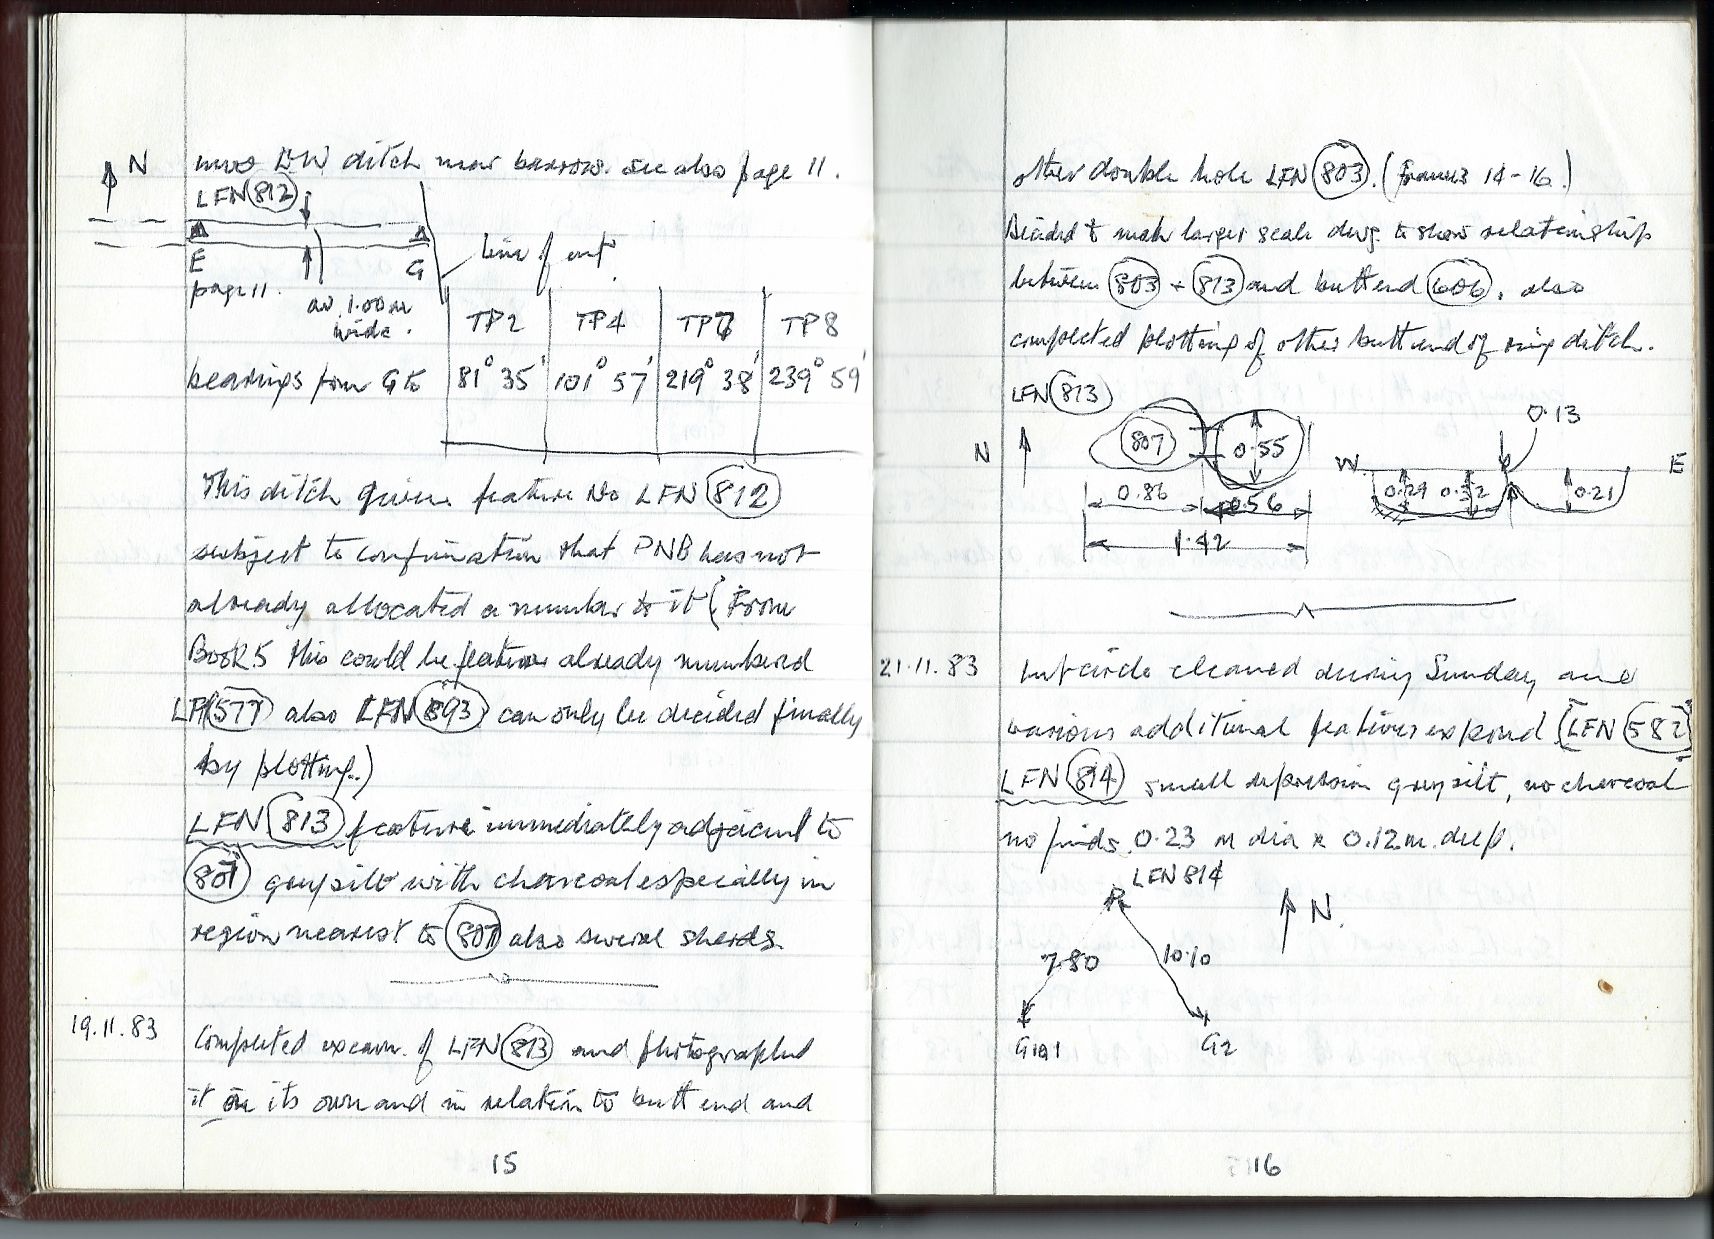 N
EW ditch near barrow. see also page 11.
LFN 812
E
G
page 11.
Line of cut
av. 1.00m
wide.
TP2 TP4 TP7 TP8
bearings from G to 81° 35' 101° 57' 219° 38' 239° 59'
This ditch given feature No LFN 812
subject to confirmation that PNB has not
already allocated a number to it (From
Book 5 this could be feature already numbered
577 also LFN 893 can only be decided finally
by plotting.)
LFN 813 feature immediately adjacent to
807 grey silt with charcoal especially in
region nearest to 807 also several sherds.
19.11.83 Completed excavn. of LFN 813 and photographed
it on its own and in relation to butt end and
15
other double hole LFN 803. (Frames 14-16.)
Decided to make larger scale dwg. to show relationship
between 803 + 813 and butt end 606. also
completed plotting of other butt end of ring ditch.
LFN 813
N
807
0.55
0.86
0.56
1.42
0.13
W
E
0.29 0.32
0.21
21.11.83 hut circle cleaned during Sunday and
various additional features exposed [LFN 582]
LFN 814 small depression grey silt, no charcoal
no finds. 0.23 m dia x 0.12m. deep.
LFN 814
N.
7.80
10.10
G101
G2
16